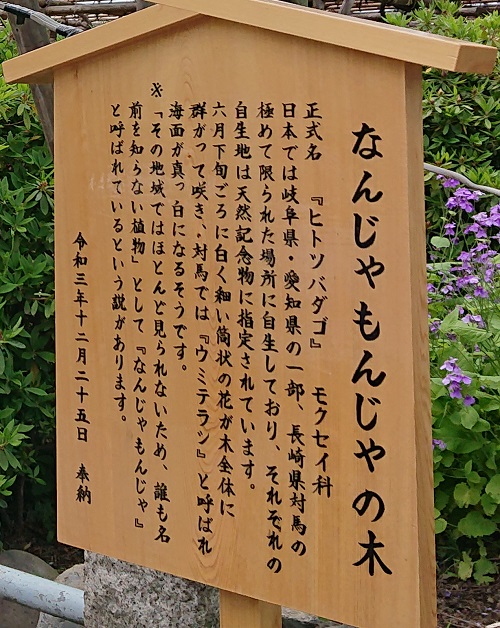 なんじゃもんじゃの木
正式名　『ヒトツバダゴ』　モクセイ科
日本では岐阜県・愛知県の一部、長崎県対馬の
極めて限られた場所に自生しており、それぞれの
自生地は天然記念物に指定されています。
六月下旬ごろに白く細い筒状の花が木全体に
群がって咲き、対馬では『ウミテラシ』と呼ばれ
海面が真っ白になるそうです。
※「その地域ではほとんど見られないため、誰も名
前を知らない植物」として『なんじゃもんじゃ』
と呼ばれているという説があります。
令和三年十二月二十五日　奉納